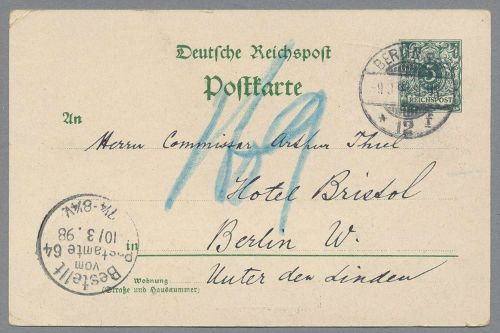 Deutsche Reichspost
Postkarte
5
REICHSPOST
12
f
An
Herrn Commissar Arthur Thiel
Hotel Bristol
in Berlin W.
Unter den Linden
Wohnung
(Straße und Hausnummer)
Bestellt
vom
Postamte 64
10/3.98
7¼-8½V.
169